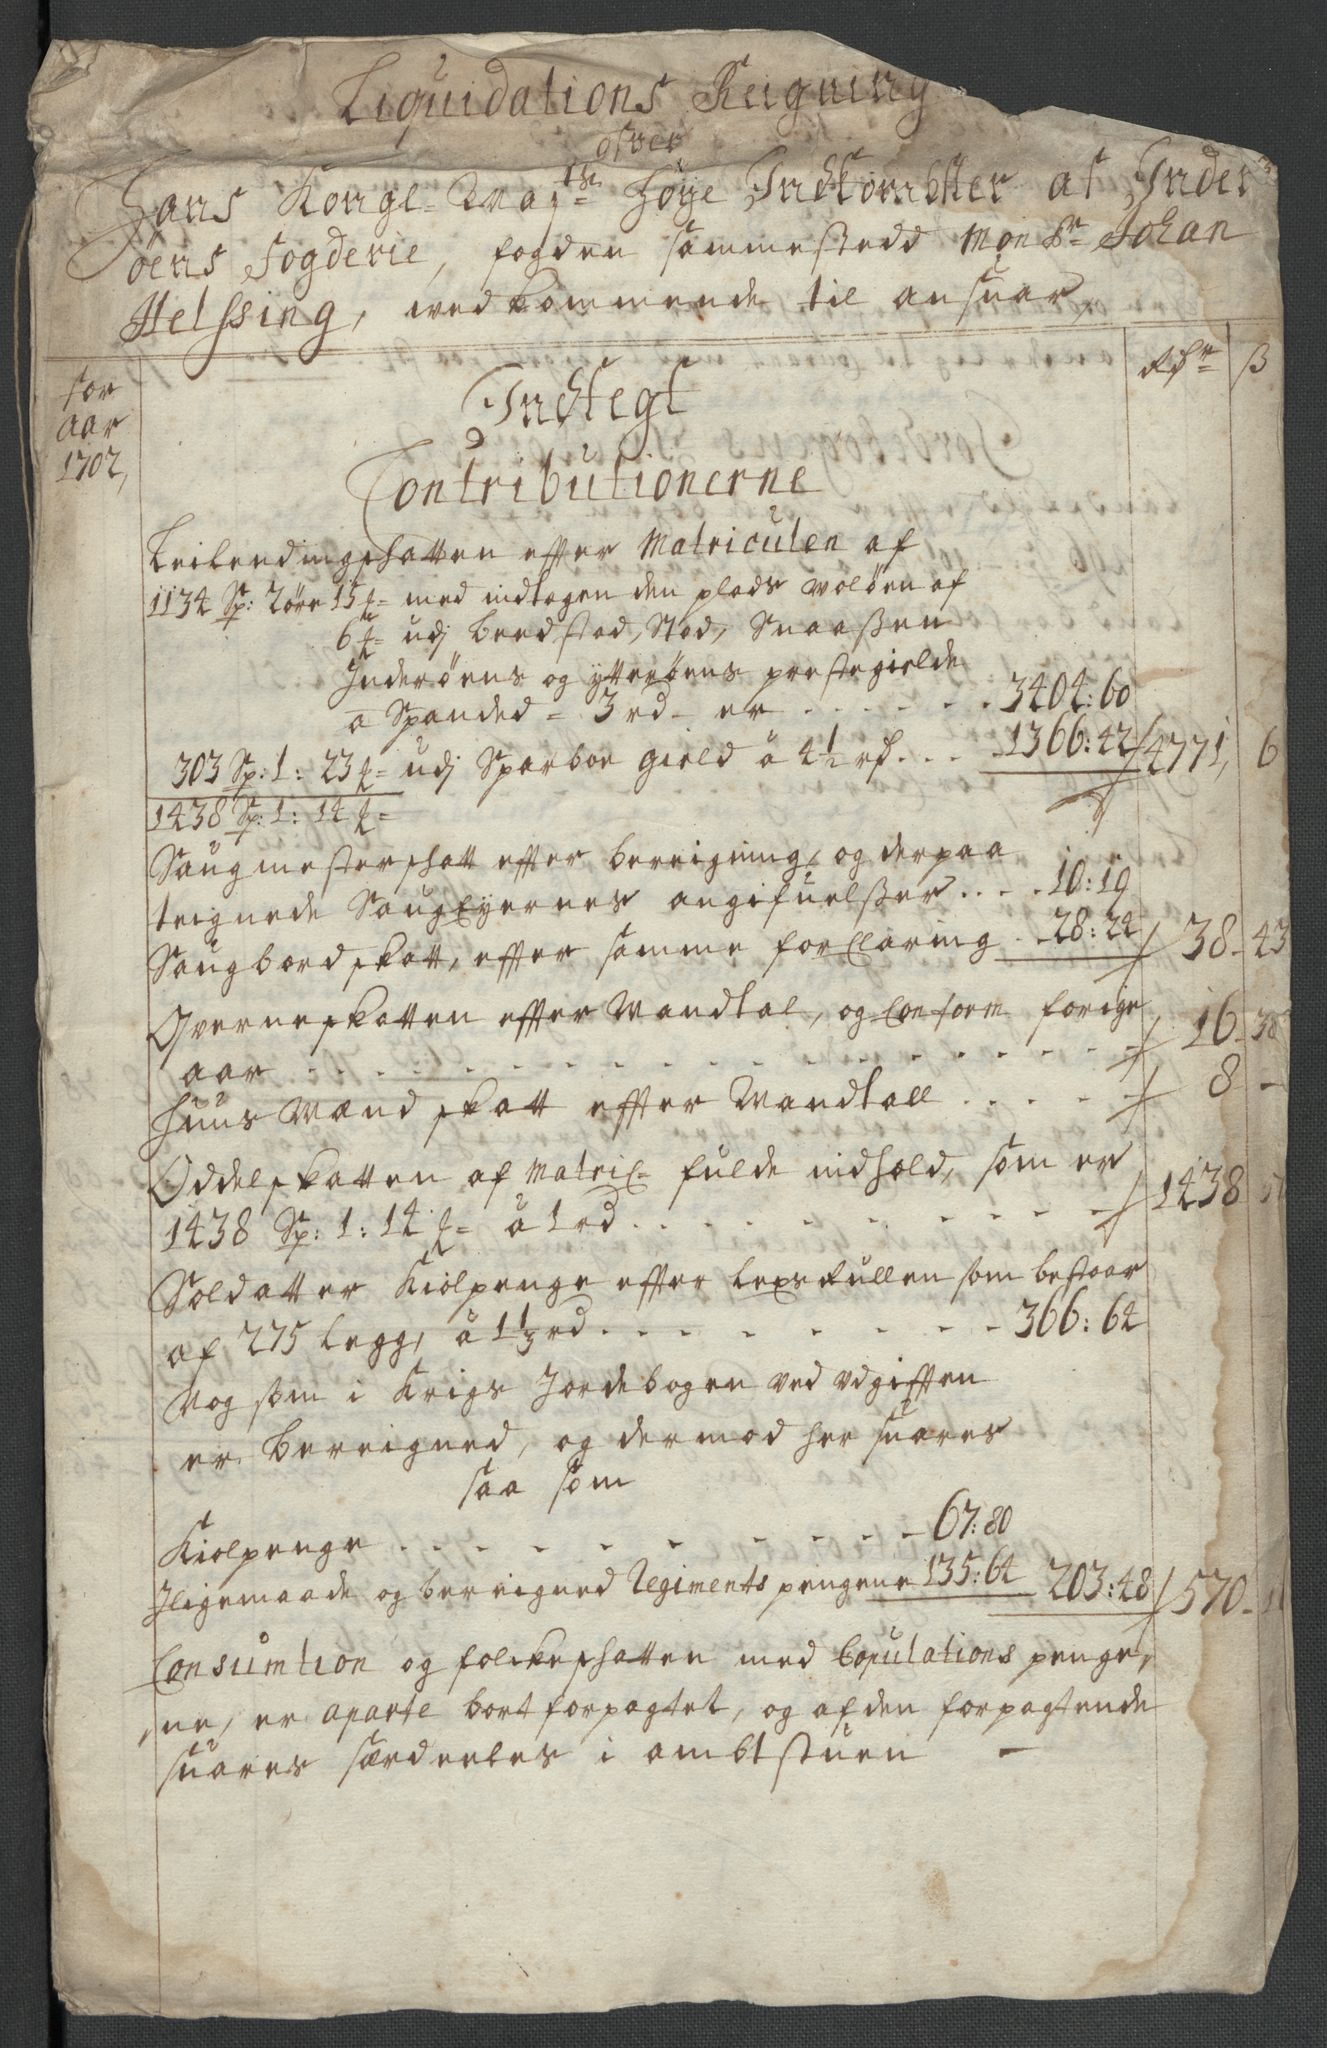 Liquidations Reigning
ofver
Hans Kongl: Mayts Høye Indkombster af Inder
øens fogderie, fogden sammestedd Monsr Johan
Helssing, vedkommende til ansuar,
for
aar
1702,
Rdr ß
Indtegt
Contributionerne
Leilendingschatten effter Matriculen af
1134 Sp: 2 øre 15 = med indtagen den plads Woløen af
6 = udj Beedstad, Stod, Snaaßen
Inderøens og ytterøens prestegielde
a Spanded = 3 rd er . . . . . . 3404: 60
303 Sp: 1: 23 = udj Sparboe gield á 4 1/2 rd . . . 1366: 42 4771, 6
1438 Sp: 1: 14 =
Saugmesterschatt effter bereigning, og derpaa
teignede Saug Eyernes angifuelßer . . . . 10: 19
Saugbordskatt, effter samme forClaring . . 28: 24 38 - 43
Qverneskatten effter Mandtal, og Conform forige
aar . . . . . . . . . . . 16 - 38
Huus Mænd skatt effter Mandtall . . . . . 8 -
Oddelskatten af Matric= fulde indhold, som er
1438 Sp: 1: 14 = á 1 rd . . . . . . . . 1438
Soldatter Kiolpenge effter Lexs Rullen som bestaar
af 275 Legg, á 1 1/3 rd . . . . . . . . 366: 64
Nog som i Krigs Jordebogen ved udgifften
er bereigned, og dermod her suares
saa som
Kiolpenge . . . . . . . . 67: 80
Iligemaade og bereigned Regiments pengene 135: 64 203: 48 570 - 1
Consumtion og folckeschatten med Copulations penge,
ne, er aparte bort forpagtet, og af den forpagtende
suares særdeeles i ambtstuen -